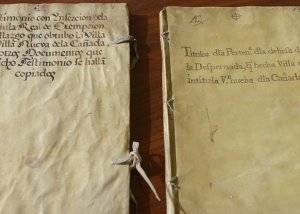 timonio con Insercion de la
dula Real de Exempcion
llazgo que obtubo la Villa
Villa Nueva de la Cañada
otros Documentos que
cho Testimonio se hallã
copiados
Titulos dla
dla dehesa d
la Despernada, q hecha Villa
intitula Vª nueba dla Cañad